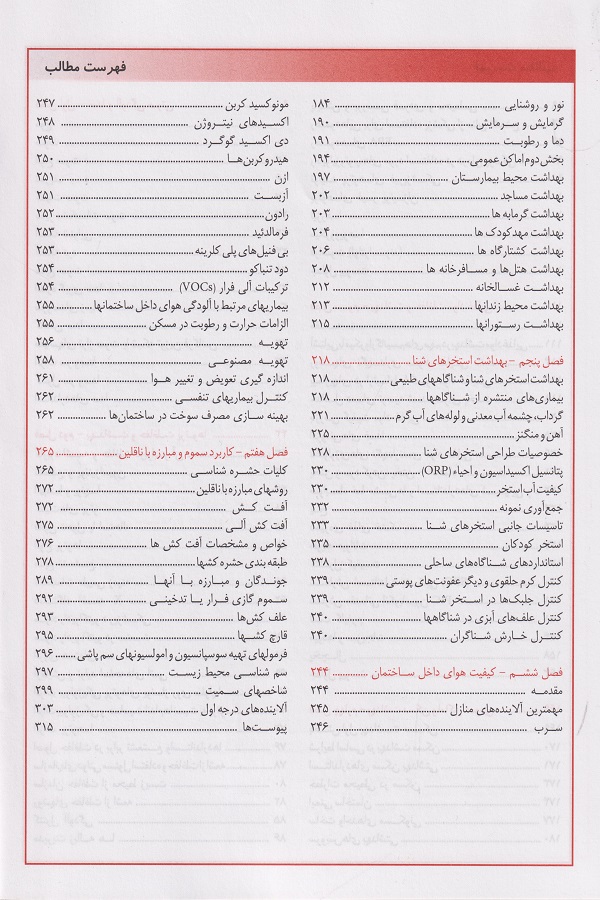 فهرست مطالب
نور و روشنایی ... ۱۸۴
گرمایش و سرمایش ... ۱۹۰
دما و رطوبت ... ۱۹۱
بخش دوم اماکن عمومی ... ۱۹۴
بهداشت محیط بیمارستان ... ۱۹۷
بهداشت مساجد ... ۲۰۲
بهداشت گرمابه ها ... ۲۰۳
بهداشت مهدکودک ها ... ۲۰۴
بهداشت کشتارگاه ها ... ۲۰۶
بهداشت هتل‌ها و مسافرخانه ها ... ۲۰۸
بهداشت غسالخانه ... ۲۱۲
بهداشت محیط زندانها ... ۲۱۳
بهداشت رستورانها ... ۲۱۵
فصل پنجم - بهداشت استخرهای شنا ... ۲۱۸
بهداشت استخرهای شنا و شناگاههای طبیعی ... ۲۱۸
بیماری‌های منتشره از شناگاهها ... ۲۱۸
گرداب، چشمه آب معدنی و لوله‌های آب گرم ... ۲۲۱
آهن و منگنز ... ۲۲۵
خصوصیات طراحی استخرهای شنا ... ۲۲۸
پتانسیل اکسیداسیون و احیاء (ORP) ... ۲۳۰
کیفیت آب استخر ... ۲۳۰
جمع‌آوری نمونه ... ۲۳۲
تاسیسات جانبی استخرهای شنا ... ۲۳۳
استخر کودکان ... ۲۳۵
استانداردهای شناگاه‌های ساحلی ... ۲۳۸
کنترل کرم حلقوی و دیگر عفونت‌های پوستی ... ۲۳۹
کنترل جلبک‌ها در استخر شنا ... ۲۳۹
کنترل علف‌های آبزی در شناگاهها ... ۲۴۰
کنترل خارش شناگران ... ۲۴۰
فصل ششم - کیفیت هوای داخل ساختمان ... ۲۴۴
مقدمه ... ۲۴۴
مهمترین آلاینده‌های منازل ... ۲۴۵
سرب ... ۲۴۶
مونوکسید کربن ... ۲۴۷
اکسیدهای نیتروژن ... ۲۴۸
دی اکسید گوگرد ... ۲۴۹
هیدروکربن‌ها ... ۲۵۰
ازن ... ۲۵۱
آزبست ... ۲۵۱
رادون ... ۲۵۲
فرمالدئید ... ۲۵۳
بی فنیل‌های پلی کلرینه ... ۲۵۳
دود تنباکو ... ۲۵۴
ترکیبات آلی فرار (VOCs) ... ۲۵۴
بیماریهای مرتبط با آلودگی هوای داخل ساختمانها ... ۲۵۵
الزامات حرارت و رطوبت در مسکن ... ۲۵۵
تهویه ... ۲۵۶
تهویه مصنوعی ... ۲۵۸
اندازه گیری تعویض و تغییر هوا ... ۲۶۱
کنترل بیماریهای تنفسی ... ۲۶۲
بهینه سازی مصرف سوخت در ساختمان‌ها ... ۲۶۲
فصل هفتم - کاربرد سموم و مبارزه با ناقلین ... ۲۶۵
کلیات حشره شناسی ... ۲۶۵
روشهای مبارزه با ناقلین ... ۲۷۲
آفت کش ... ۲۷۲
آفت کش آلی ... ۲۷۵
خواص و مشخصات آفت کش ها ... ۲۷۶
طبقه بندی حشره کشها ... ۲۷۸
جوندگان و مبارزه با آنها ... ۲۸۹
سموم گازی فرار یا تدخینی ... ۲۹۲
علف کش‌ها ... ۲۹۳
قارچ کشها ... ۲۹۵
فرمولهای تهیه سوسپانسیون و امولسیونهای سم پاشی ... ۲۹۶
سم شناسی محیط زیست ... ۲۹۷
شاخصهای سمیت ... ۲۹۹
آلاینده‌های درجه اول ... ۳۰۳
پیوست‌ها ... ۳۱۵